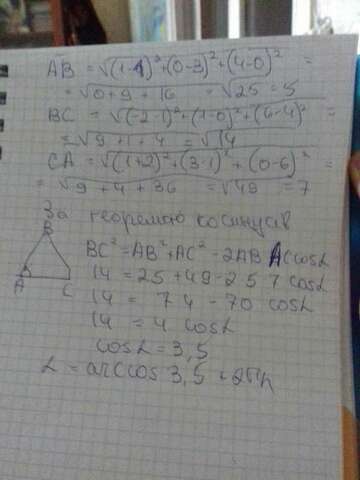 AB = √(1-1)²+(0-3)²+(4-0)² =
= √0+9+16 = √25 = 5
BC = √(-2-1)²+(1-0)²+(6-4)² =
= √9+1+4 = √14
CA = √(1+2)²+(3-1)²+(0-6)² =
= √9+4+36 = √49 = 7
За теоремою косинусів
B
A C
BC² = AB²+AC²-2AB ACcosL
14 = 25+49-2 5 7 cosL
14 = 74 - 70 cosL
14 = 4 cosL
cosL = 3,5
L = arccos 3,5 + 2πn